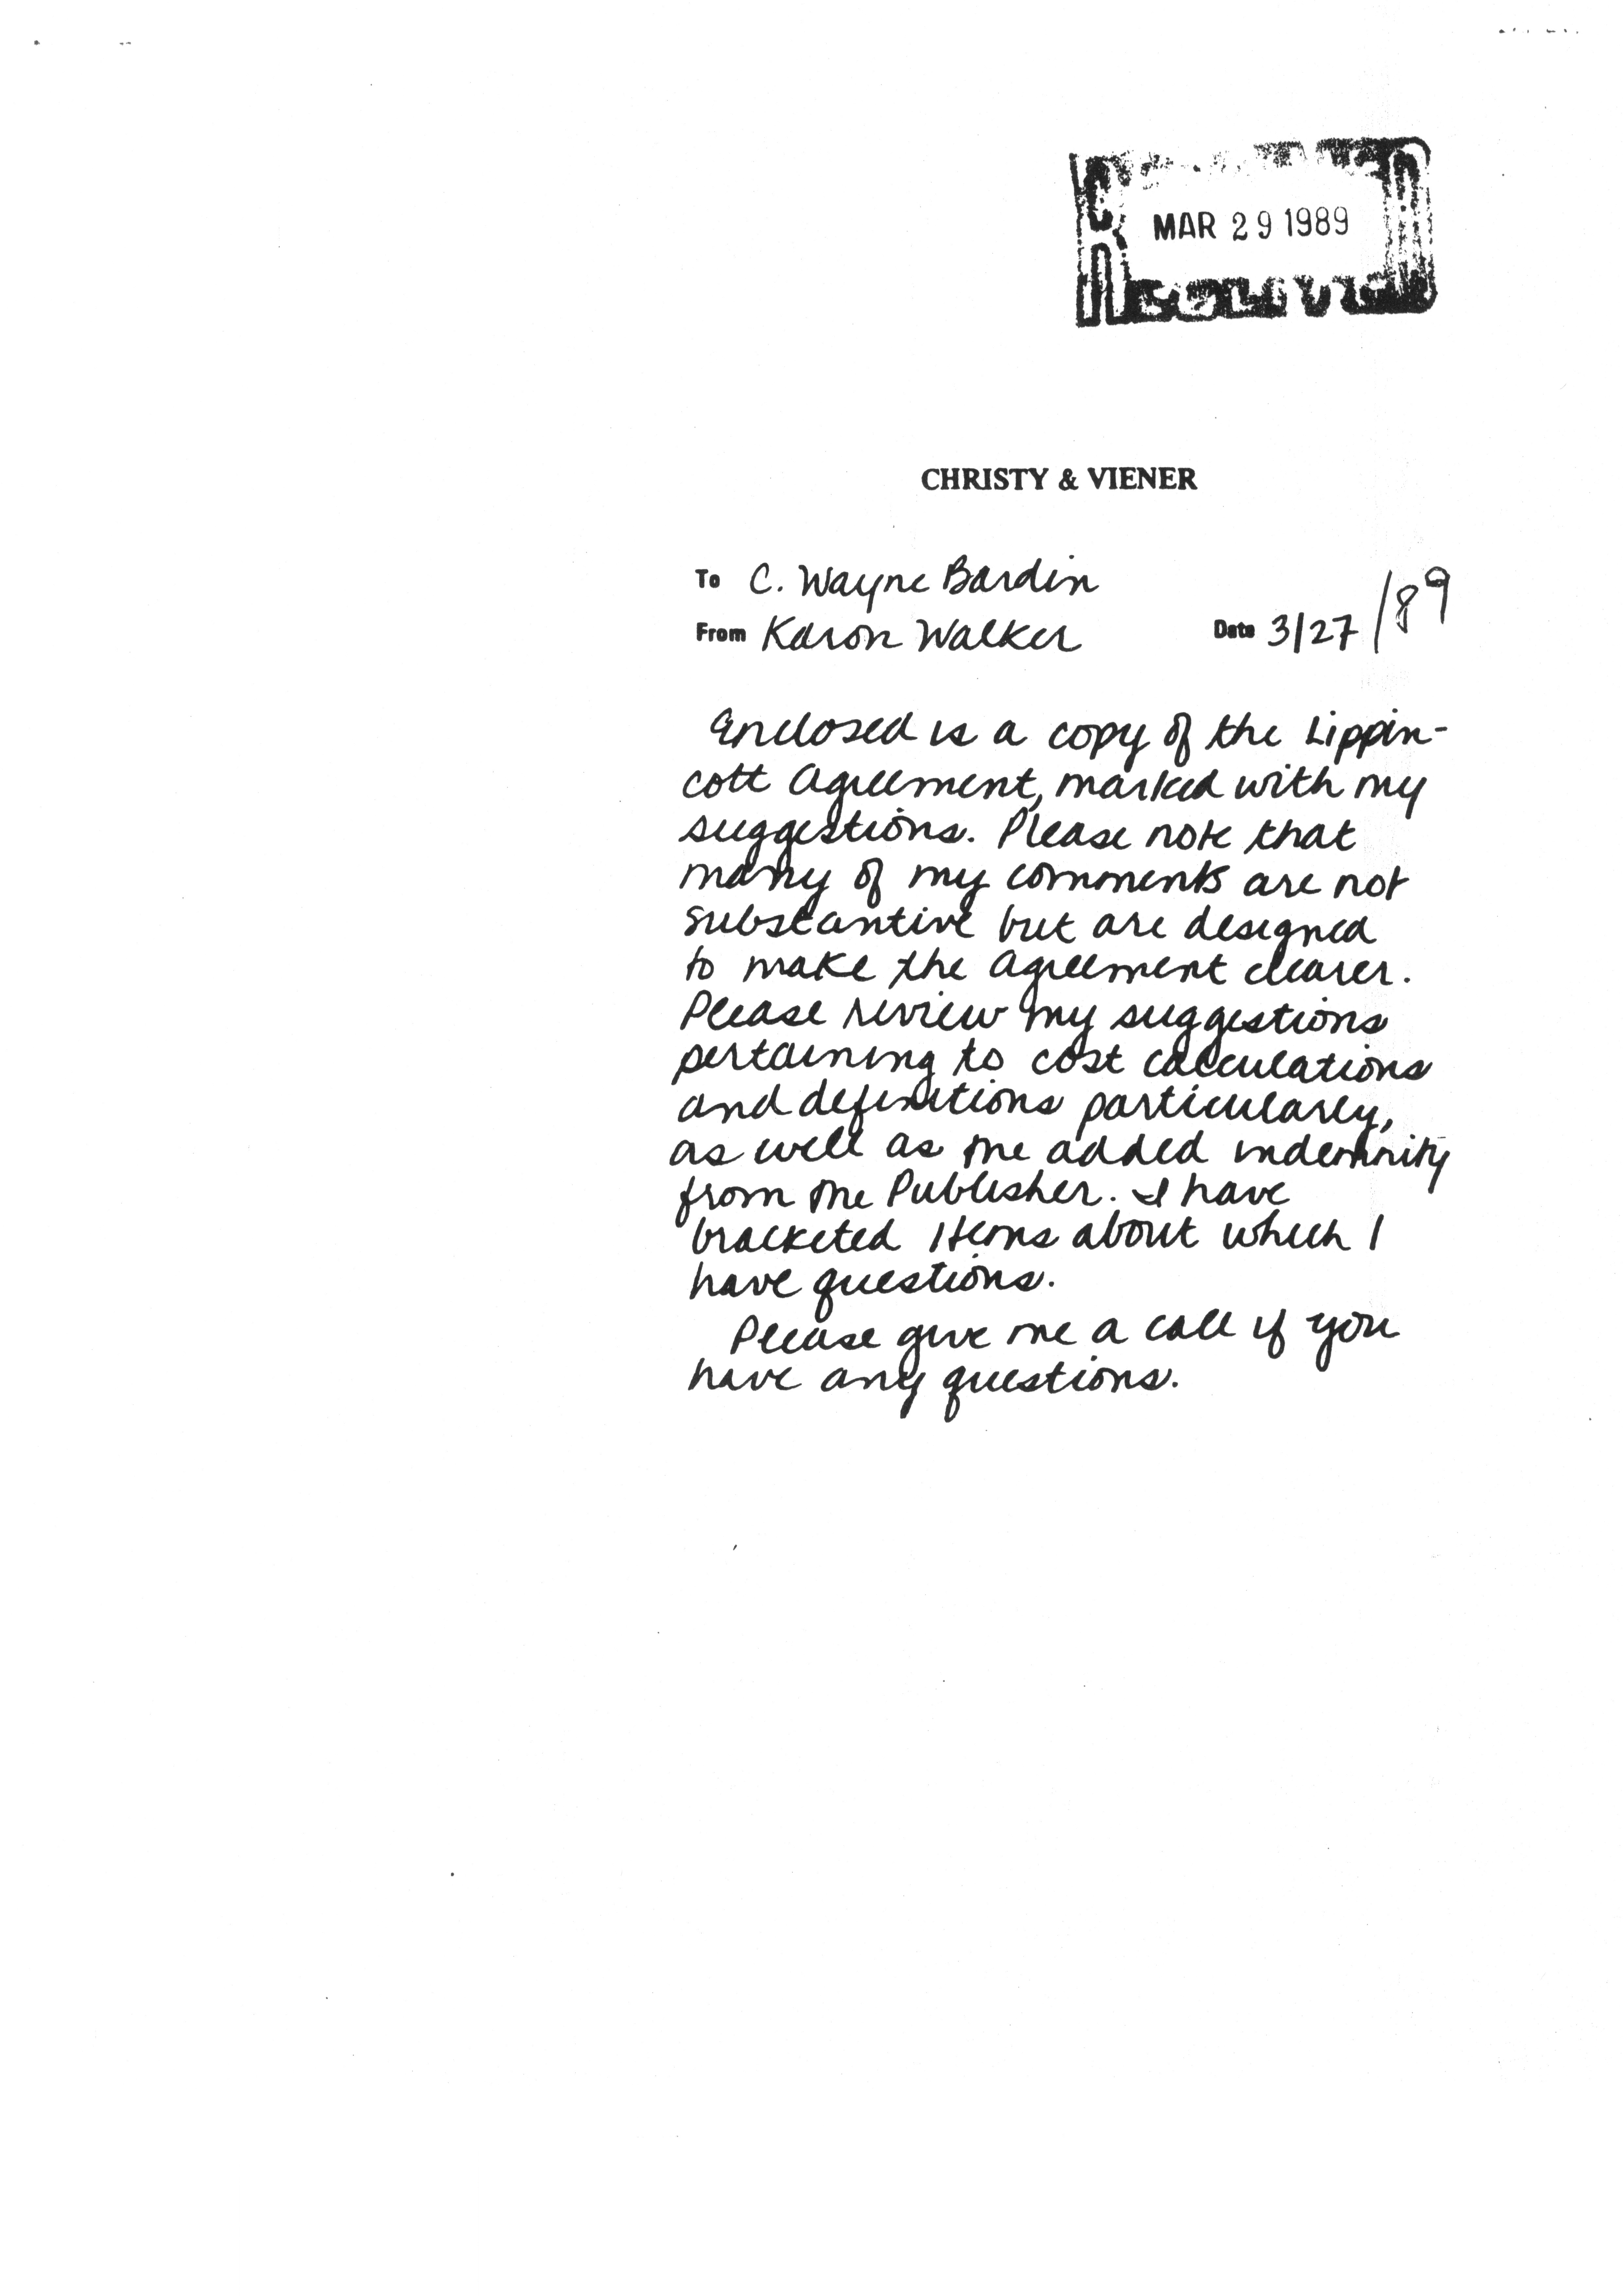 MAR 29 1989
CHRISTY & VIENER
To C. Wayne Bardin
From Karon Walker Date 3/27/89
Enclosed is a copy of the Lippin-
cott Agreement, marked with my
suggestions. Please note that
many of my comments are not
substantive but are designed
to make the Agreement clearer.
Please review my suggestions
pertaining to cost calculations
and definitions particularly,
as well as the added indemnity
from the Publisher. I have
bracketed items about which I
have questions.
Please give me a call if you
have any questions.